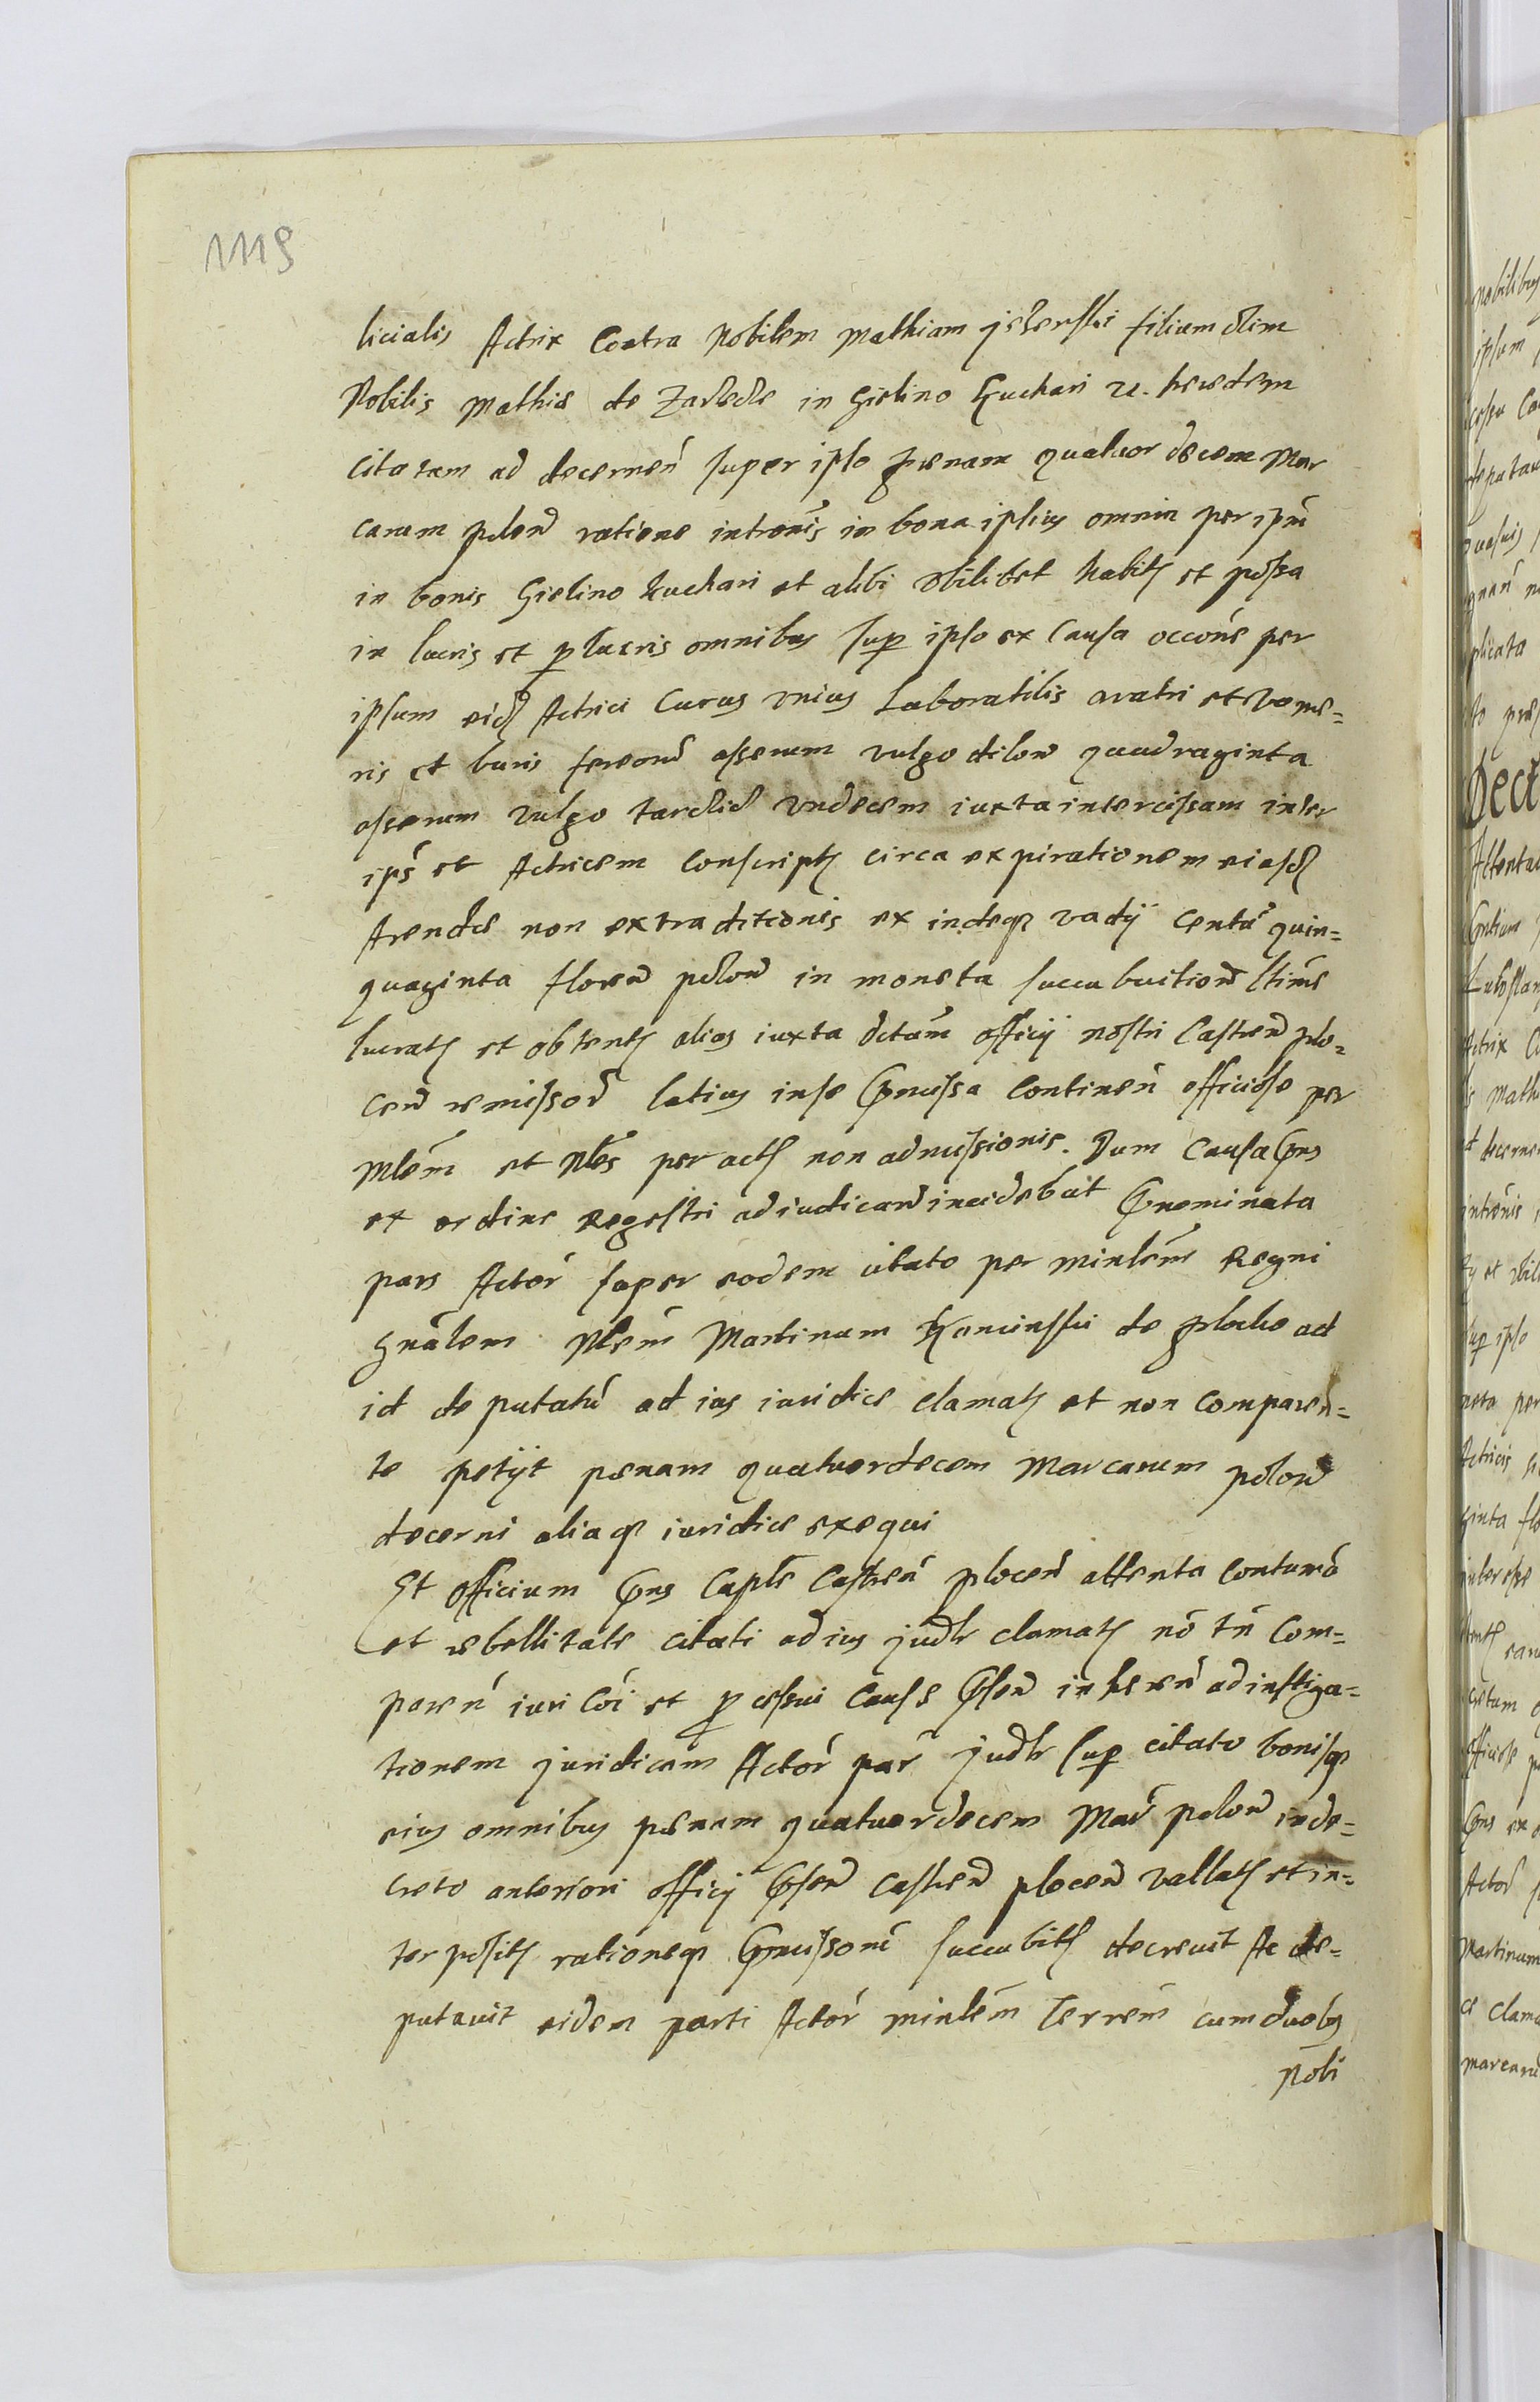 1119
licialis Actrix Contra Nobilem Mathiam jezerski filium olim
Nobilis Mathiæ de in Gielino Kuchari heredem
citatum ad decernen̄ super ipso pœnam quatuordecem Mar
carum polon̄ ratione intronīs in bona ipsius omnia per ipm̄
in bonis Gielino Kuchari et alibi vbilibet habit et possa
in lucris et p lucris omnibus sup ipso ex Causa occōne per
ipsum eid Actrici Currus vnius Laboratilis aratri et vome=
ris et buris ferreor̄ asserum vulgo dilow quadraginta
asserum vulgo tarcic vndecem iuxta intercissam inter
ips̄ et Actricem Conscript circa expirationem eiusd
Arendæ non extraditionis ex indeq vadij Centū quin=
quaginta floren̄ polon̄ in moneta succubuition̄
lucrat et obtent alias iuxta officij nostri Castren̄ plo=
cen̄ remissor̄ latius in se præmissa Continen̄ officiose per
Mlem̄ et Nles̄ peract non admissionis. Dum Causa pns
ex ordine Regestri ad iudicand incidebat prænominata
pars Actor̄ super eodem citato per minlem̄ Regni
Gnālem Nlem̄ Martinum de plocko ad
id deputatū ad ius iuridice clamat et non Comparen=
te petijt pœnam quatuordecem Marcarum polon̄
decerni aliaq iuridice exequi
Et officium pns Caple Castren̄ plocen̄ attenta Contumā
et rebellitate citati ad ius judr clamat nō tn̄ Com=
paren̄ iuri Cōi et p cessui Causæ pnsen inheren̄ ad instiga=
tionem juridicam Actor̄ par̄ judr sup citato bonisq
eius omnibus pœnam quatuordecem Mar̄ polon̄ in de=
creto anteriori officij pnsen Castren̄ plocen̄ vallat et in=
terposit rationeq præmissor̄ succubit decrevit Ac de=
putavit eidem parti Actor̄ minlem̄ terren̄ cum duobus
Nobi